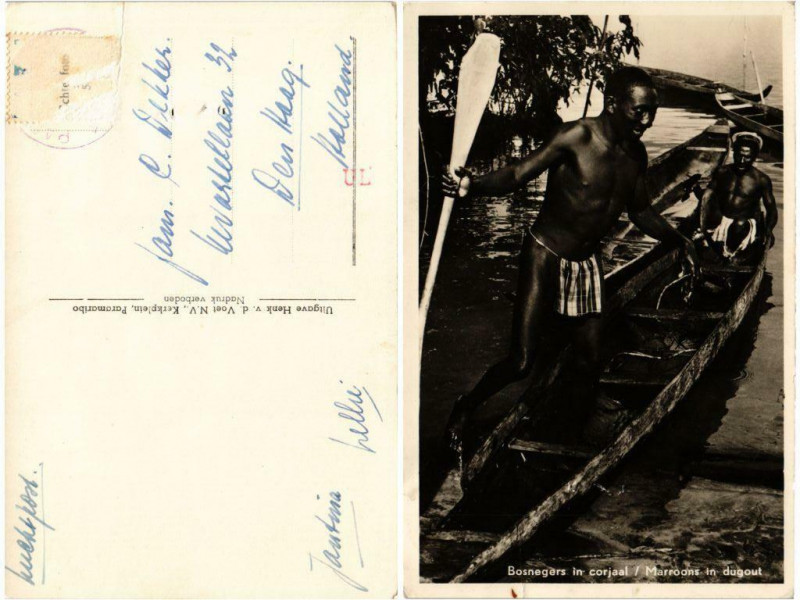 luchtpost.
Jantina
Lellie
Fam. C. Dekker.
32
Den Haag.
Holland
Uitgave Henk v. d. Voet N.V., Kerkplein, Paramaribo
Nadruk verboden
Bosnegers in corjaal / Marroons in dugout